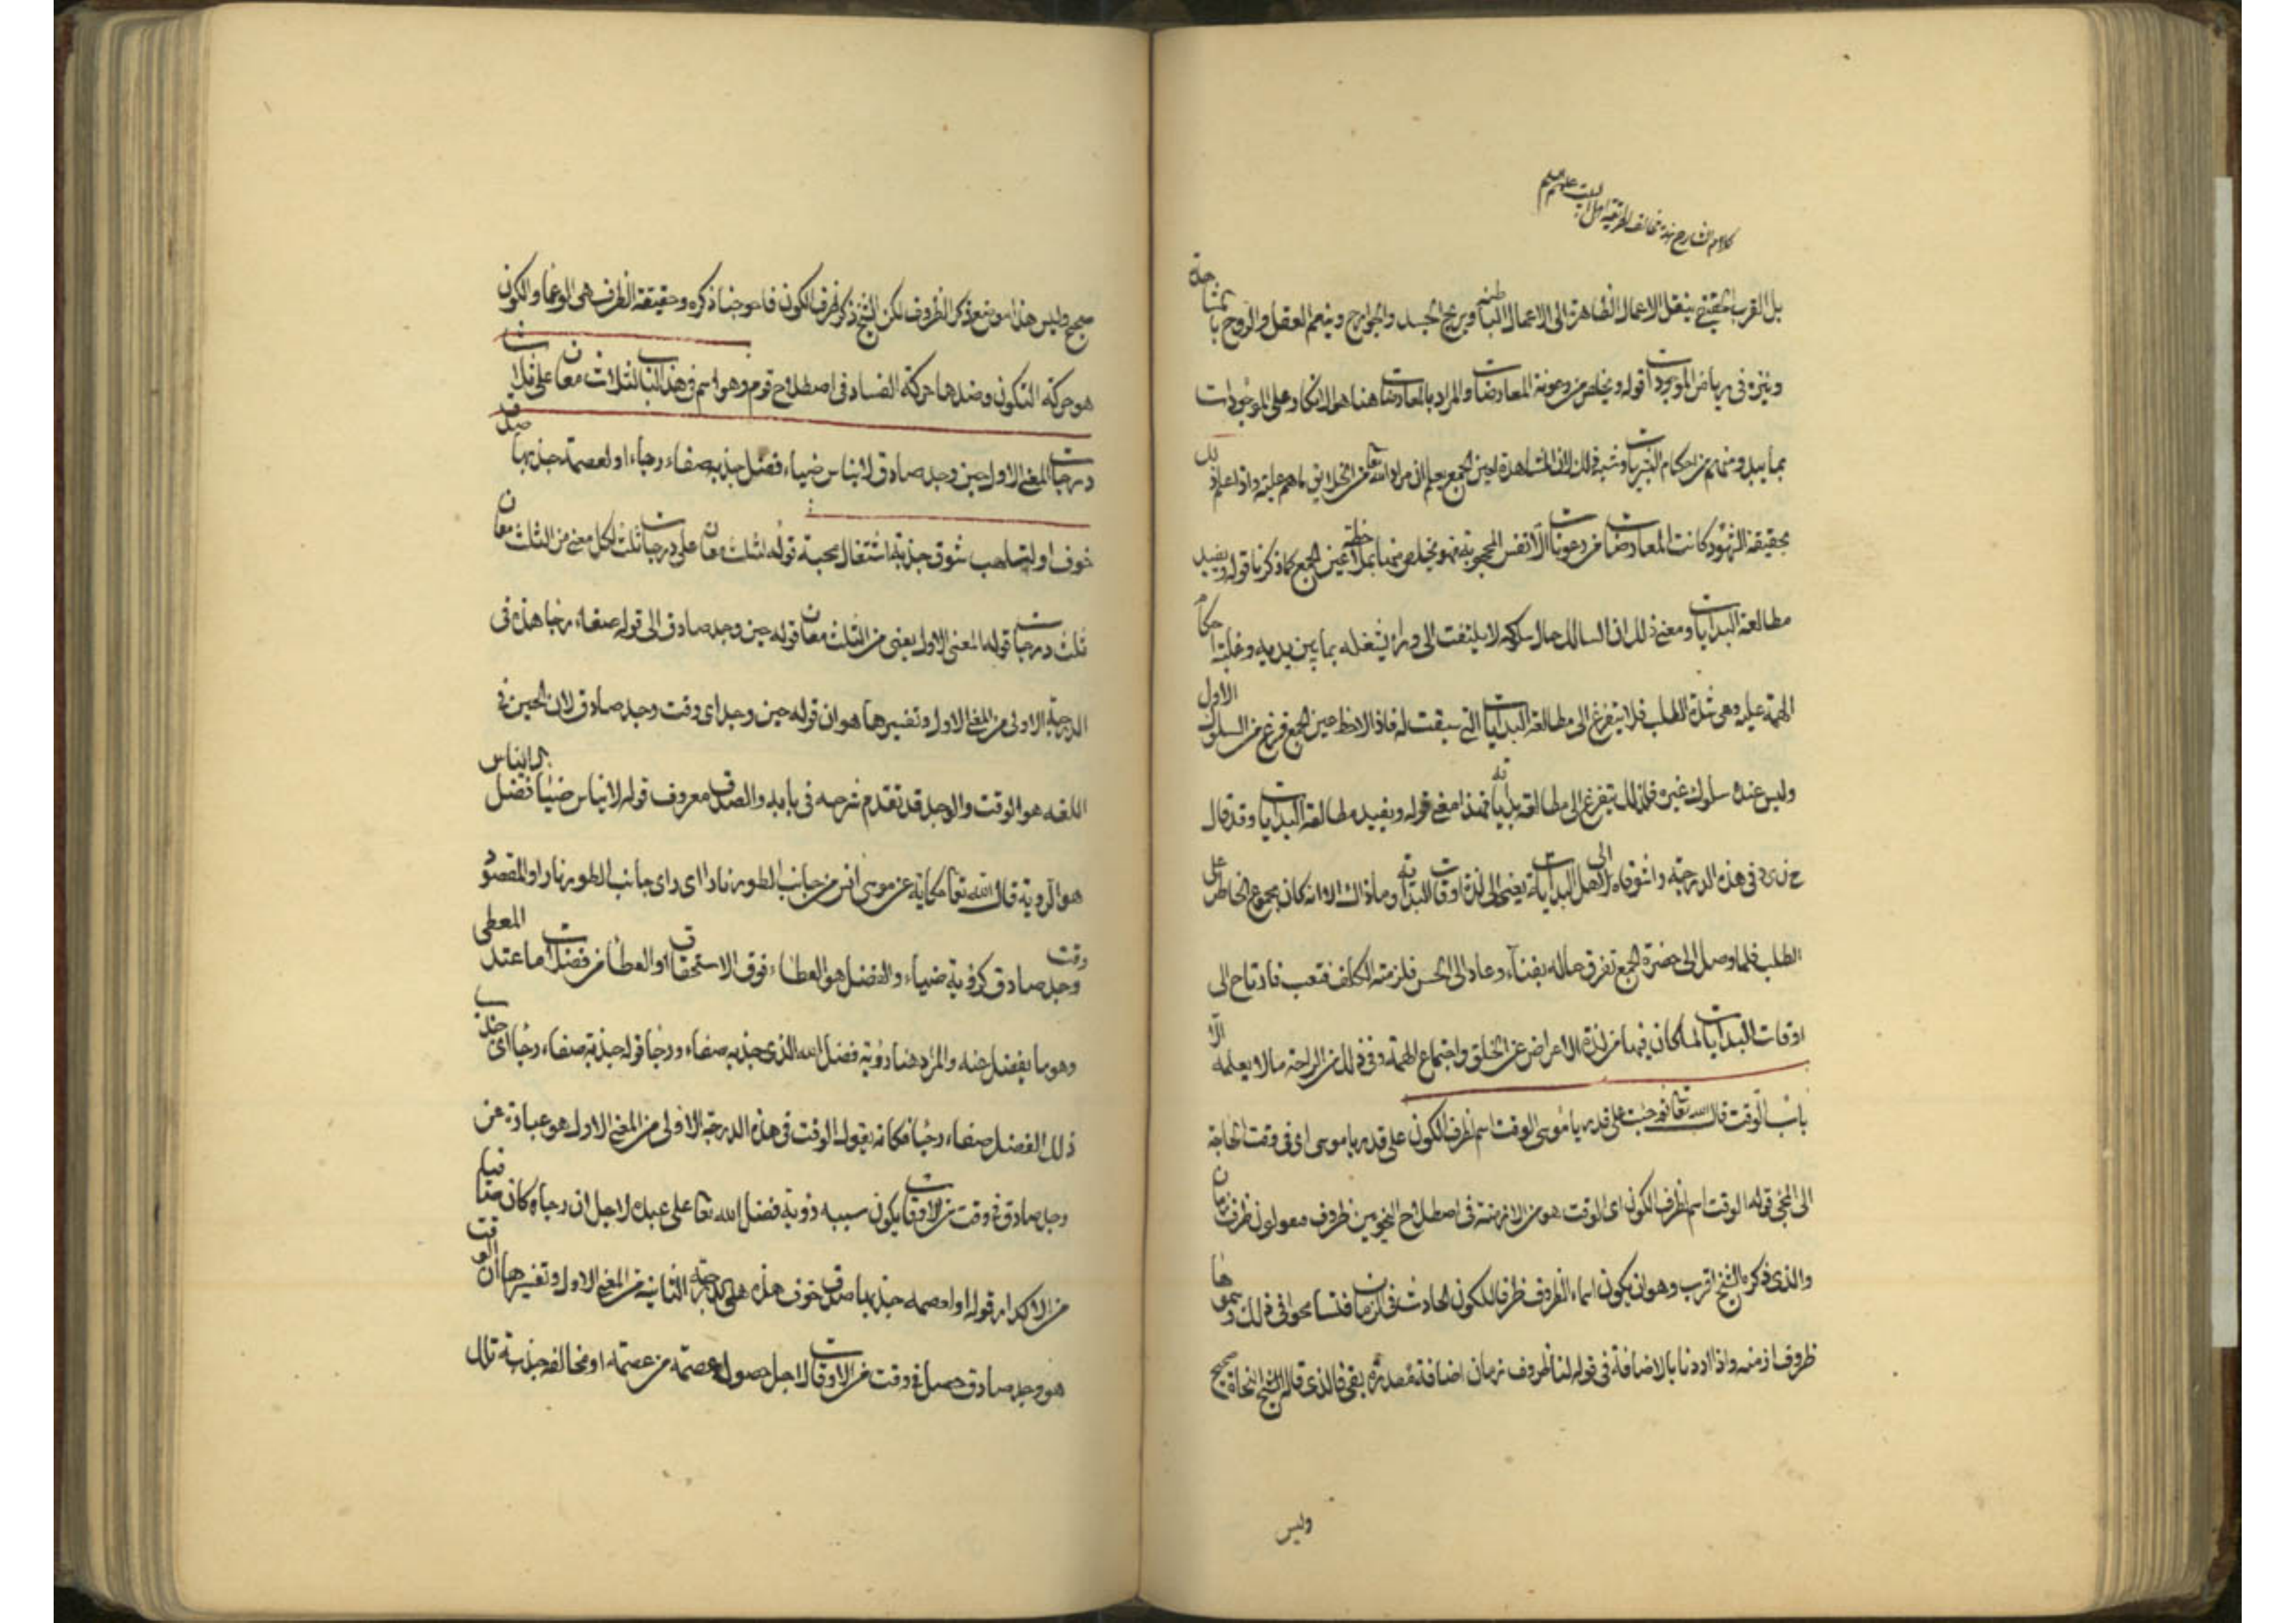 كلام الشارح هذا مخالف لطريقة اهل البيت عليهم السلم
بل القرب الحقيقي ينقل الاعمال الظاهرة الى الاعمال الباطنة ويريح الجسد والجوارح وينعم العقل والروح بالمشاهدة
ويتنزه في رياض الموجودات قوله ويخلص من رعونة المعارضات والمراد بالمعارضات هنا هو الانكار على الموجودات
بما يبدو منهم من احكام البشريات وشبه ذلك لان المشاهدة لعين الجمع يعلم ان مراد الله تعا من الخلايق ما هم عليه واذا علم ذلك
بحقيقة الشهود كانت المعارضات من رعونات الانفس المحجوبة فهو يخلص منها بملاحظة عين الجمع كما ذكرنا قوله ويفيد
مطالعة البدايات ومعنى ذلك ان السالك حال سلوكه لا يلتفت الى ورائه لشغله بما بين يديه وغلبة احكام
الهمة عليه وهي شدة الطلب فلا يتفرغ الى مطالعة البدايات التي سبقت له فاذا لاحظ عين الجمع فرغ من السلوك الاول
وليس عنده سلوك غيره فلذلك يتفرغ الى مطالعة بداياته فهذا معنى قوله ويفيد مطالعة البدايات وقد قال
في هذه الدرجة واشوقاه الى اهل البدايات يعني الى لذة اوقات البداية وما ذاك الا انه كان مجموع الخاطر على
الطلب فلما وصل الى حضرة الجمع تفرق حاله بفنائه وعاد الى الحس فلزمته الكلف فتعب فارتاح الى
اوقات البدايات لما كان فيها من لذة الاعراض عن الخلق واجتماع الهمة وفي ذلك من الراحة ما لا يعلمه الا
باب الوقت قال الله تعا ثم جئت على قدر يا موسى الوقت اسم لظرف الكون على قدر يا موسى اى في وقت الحاجة
الى المجئ قوله الوقت اسم لظرف الكون اى الوقت هو من الازمنة في اصطلاح النحويين ظروف يقولون ظرف زمان
والذى ذكره الشيخ اقرب وهو ان يكون اسماء الظروف ظرفا للكون الحادث في الزمان فتسامحوا في ذلك وسموها
ظروف ازمنه واذا اردنا بالاضافة في قوله لنا ظروف زمان اضافة مقدرة بقى فالذى قاله الشيخ النحاة صحيح
وليس
صحيح وليس هذا موضع ذكر الظروف لكن الشيخ ذكر ظرف الكون فاحوجنا ذكره وحقيقة الظرف هى الوعا والكون
هو حركة التكون وضدها حركة الفساد في اصطلاح قوم وهو اسم في هذا الباب لثلاث معان على ثلاث
درجات المعنى الاول حين وجد صادق لايناس ضياء فضل جذبه صفاء رجاء او لعصمة جذبها صدق
خوف او لتلهب شوق جذبه اشتعال محبة قوله لثلث معان على درجات ثلث لكل معنى من الثلث معان
ثلث درجات قوله المعنى الاول يعنى من الثلث معان قوله حين وجد صادق الى قوله صفاء رجا هذه في
الدرجة الاولى من المعنى الاول وتفسيرها هو ان قوله حين وجد اى وقت وجد صادق لان الحين في
اللغه هو الوقت والوجد قد تقدم شرحه في بابه والصدق معروف قوله لايناس ضياء فضل الايناس
هو الروية قال الله تعا حكاية عن موسى انس من جانب الطور نارا اى راى جانب الطور نارا والمقصود
وقت وجد صادق كروية ضياء والفضل هو العطاء فوق الاستحقاق او العطا من فضل ما عند المعطى
وهو ما يفضل عنه والمراد هنا رؤية فضل الله الذى جذبه صفاء ورجا قوله جذبه صفاء رجا اى جذب
ذلك الفضل صفاء رجا فكانه يقول الوقت في هذه الدرجة الاولى من المعنى الاول هو عبارة عن
وجد صادق في وقت من الاوقات يكون سببه رؤية فضل الله تعا على عبده لاجل ان رجاه وكان صافيا
من الاكدار قوله او لعصمه جذبها صدق خوف هذه هى الدرجة الثانية من المعنى الاول وتفسيرها ان الوقت
هو وجد صادق حصل في وقت من الاوقات لاجل حصول عصمة من عصمته او مخالفه جذبت تلك